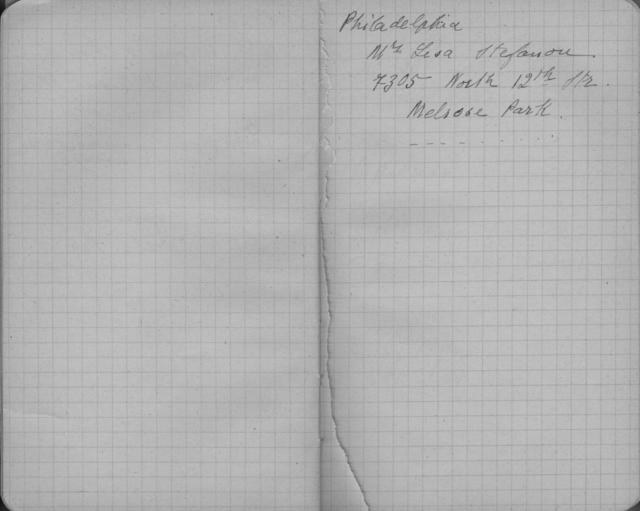 Philadelphia
Mrs Lisa Stefanon
7305 North 12th Str.
Melrose Park.